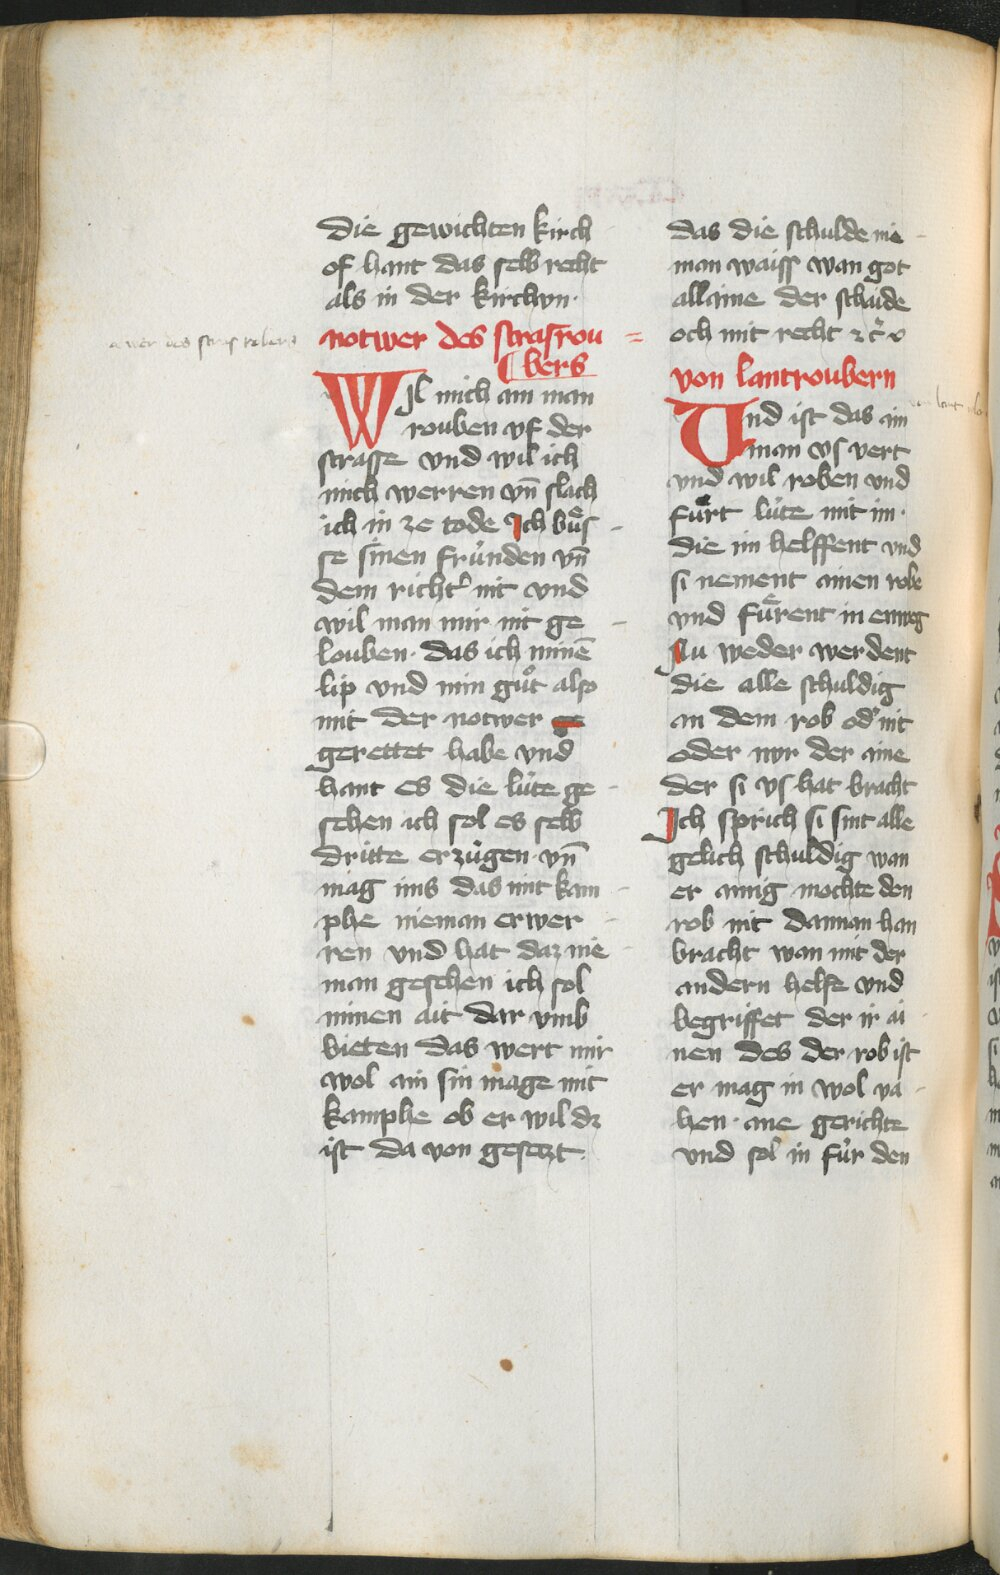 die gewichten kirch
of hant das selb recht
als in der kirchyn·
notwer des strasrou=
bers
Wil mich ain man
rouben vf der
strasse vnd wil ich
mich werren vn̄ slach
ich in ze tode Ich buͤs-
se sinen fruͤnden vn̄
dem richt' nit vnd
wil man mir nit ge-
louben· das ich minē
lip vnd min guͦt also
mit der notwer
gerettet habe vnd
hant es die luͤte ge-
sehen ich sol es selb
dritte erzuͤgen· vn̄
mag ims das mit kam-
phe nieman erwer-
ren vnd hat daz nie-
man gesehen ich sol
minen ait dar vmb
bieten das wert mir
wol ain sin mage mit
kamphe ob er wil dz
ist da von gesetzt·
das die schulde nie-
man waiss wan got
allaine der schaide
och mit recht
von lantroubern
Vnd ist das ain
man vs vert
vnd wil roben vnd
fuͤrt luͤte mit im·
die im helffent vnd
si nement ainen robe
vnd fuͤrent in enweg
Nu weder werdent
die alle schuldig
an dem rob od' nit
oder nyr der aine
der si vs hat bracht
Ich sprich si sint alle
gelich schuldig wan
er ainig mochte den
rob nit dannan han
bracht wan mit der
andern helfe vnd
begriffet der ir ai-
nen des der rob ist
er mag in wol va-
hen· ane gerichte
vnd sol in fuͤr den